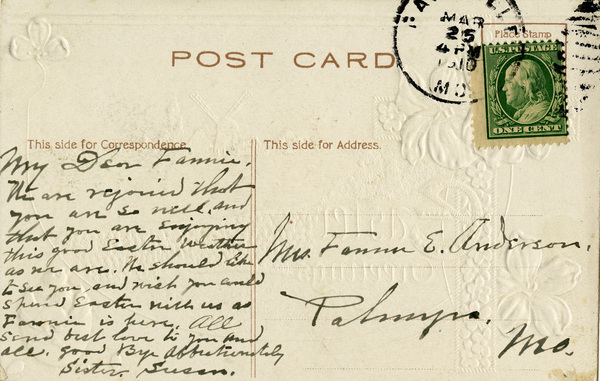 POST CARD
MAR
25
4 PM
1910
MO.
Place Stamp
U.S. POSTAGE
ONE CENT
This side for Correspondence.
This side for Address.
My Dear Fannie,
We are rejoiced that
you are so well, and
that you are enjoying
this good Easter Weather
as we are. We should like
to see you, and wish you could
spend Easter with us as
Fannie is here. All
send best love to you and
all. good Bye
Sister. Susan.
Mrs. Fannie E. Anderson.
Palmyra.
Mo.